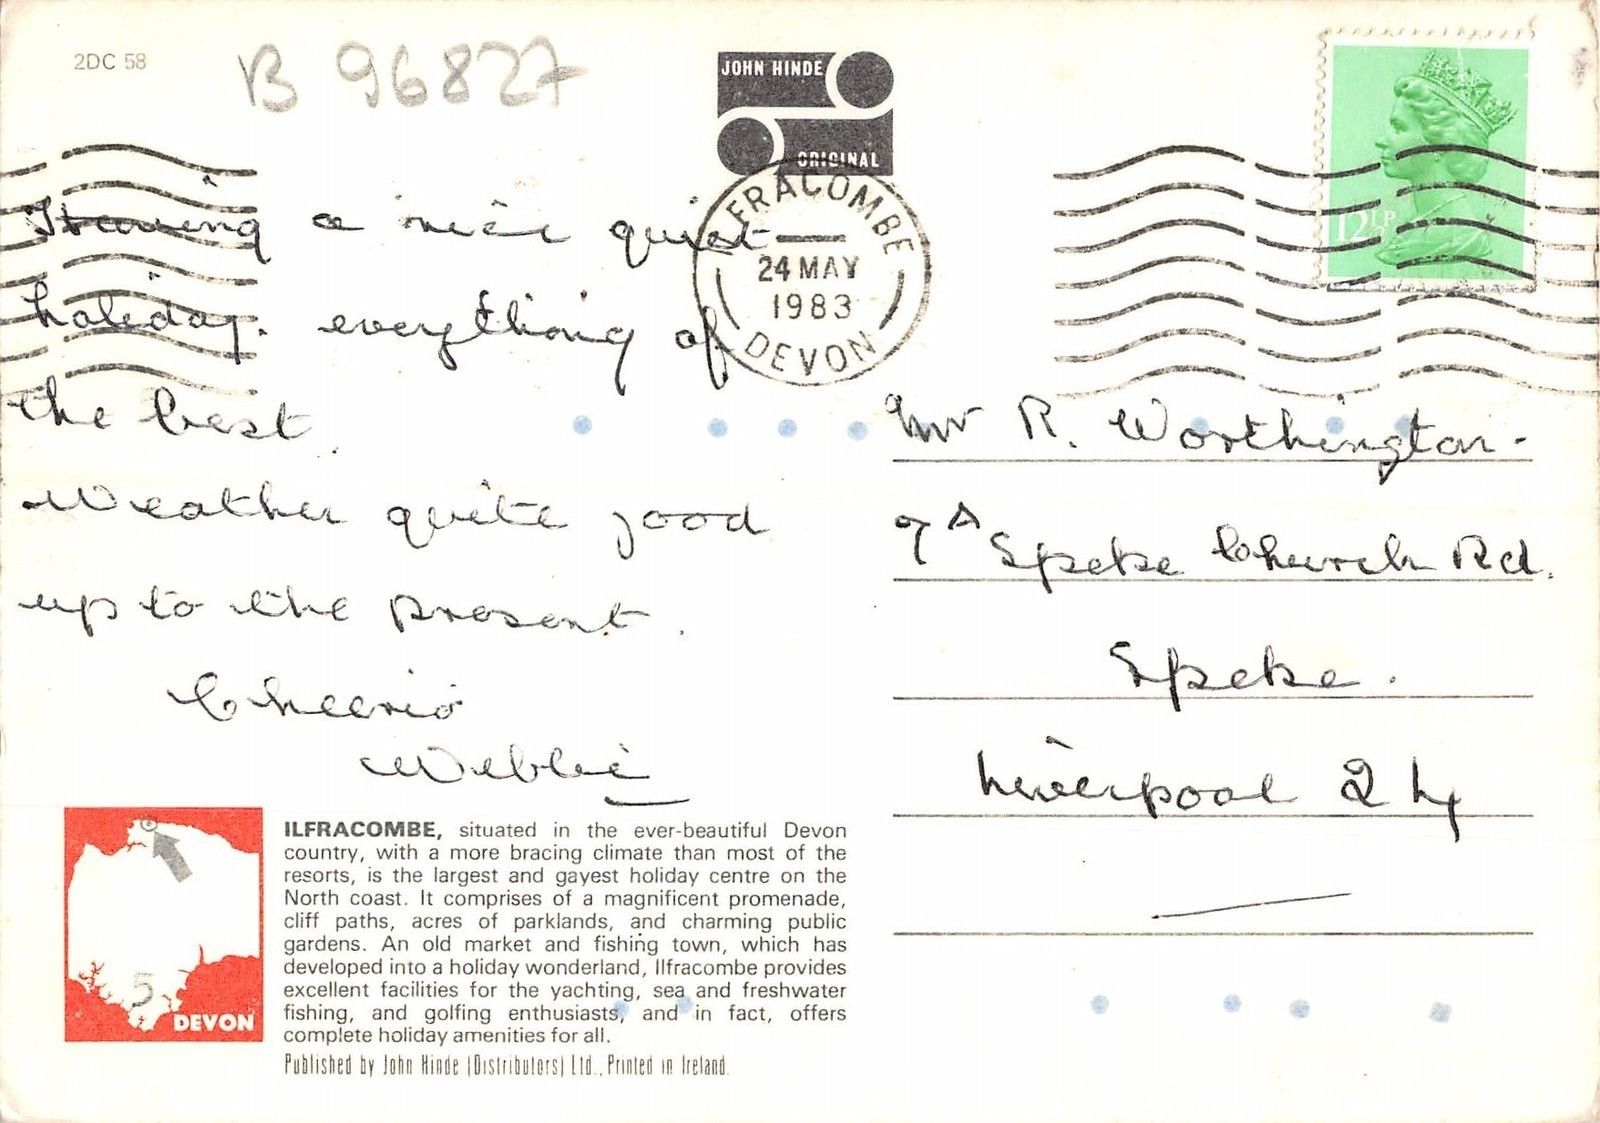 2DC 58
B 96827
JOHN HINDE
ORIGINAL
ILFRACOMBE
24 MAY
1983
DEVON
12½P
Having a nice quiet
holiday. everything of
the best.
Weather quite good
up to the present.
Cheerio
Webbie
Mr R. Worthington -
7A Speke Church Rd.
Speke.
Liverpool 24
ILFRACOMBE, situated in the ever-beautiful Devon
country, with a more bracing climate than most of the
resorts, is the largest and gayest holiday centre on the
North coast. It comprises of a magnificent promenade,
cliff paths, acres of parklands, and charming public
gardens. An old market and fishing town, which has
developed into a holiday wonderland, Ilfracombe provides
excellent facilities for the yachting, sea and freshwater
fishing, and golfing enthusiasts, and in fact, offers
complete holiday amenities for all.
Published by John Hinde (Distributors) Ltd., Printed in Ireland.
5
DEVON